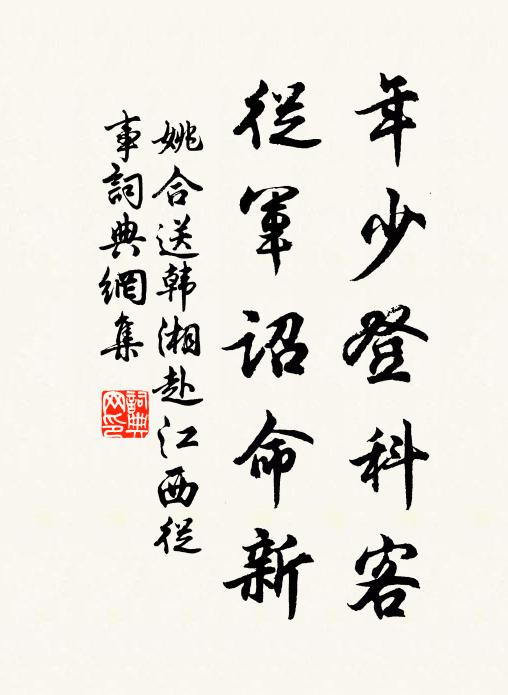 年少登科客
從軍詔命新
姚合送韩湘赴江西從
事詞典網集
詞典
网印